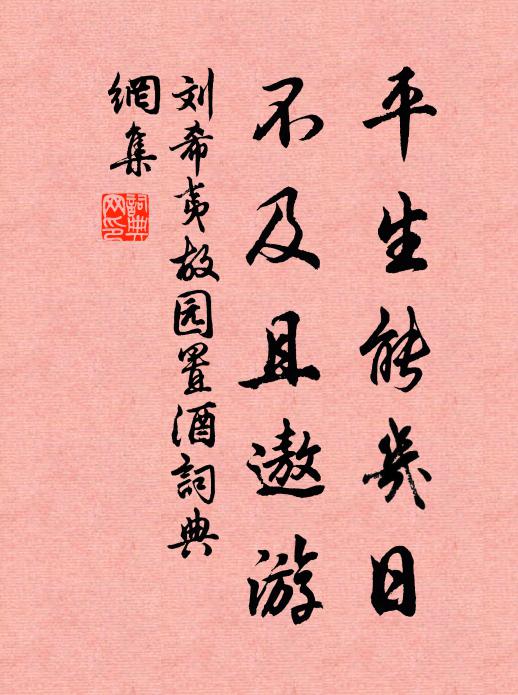 平生能几日
不及且遨游
刘希夷故园置酒詞典
網集
詞典
网印